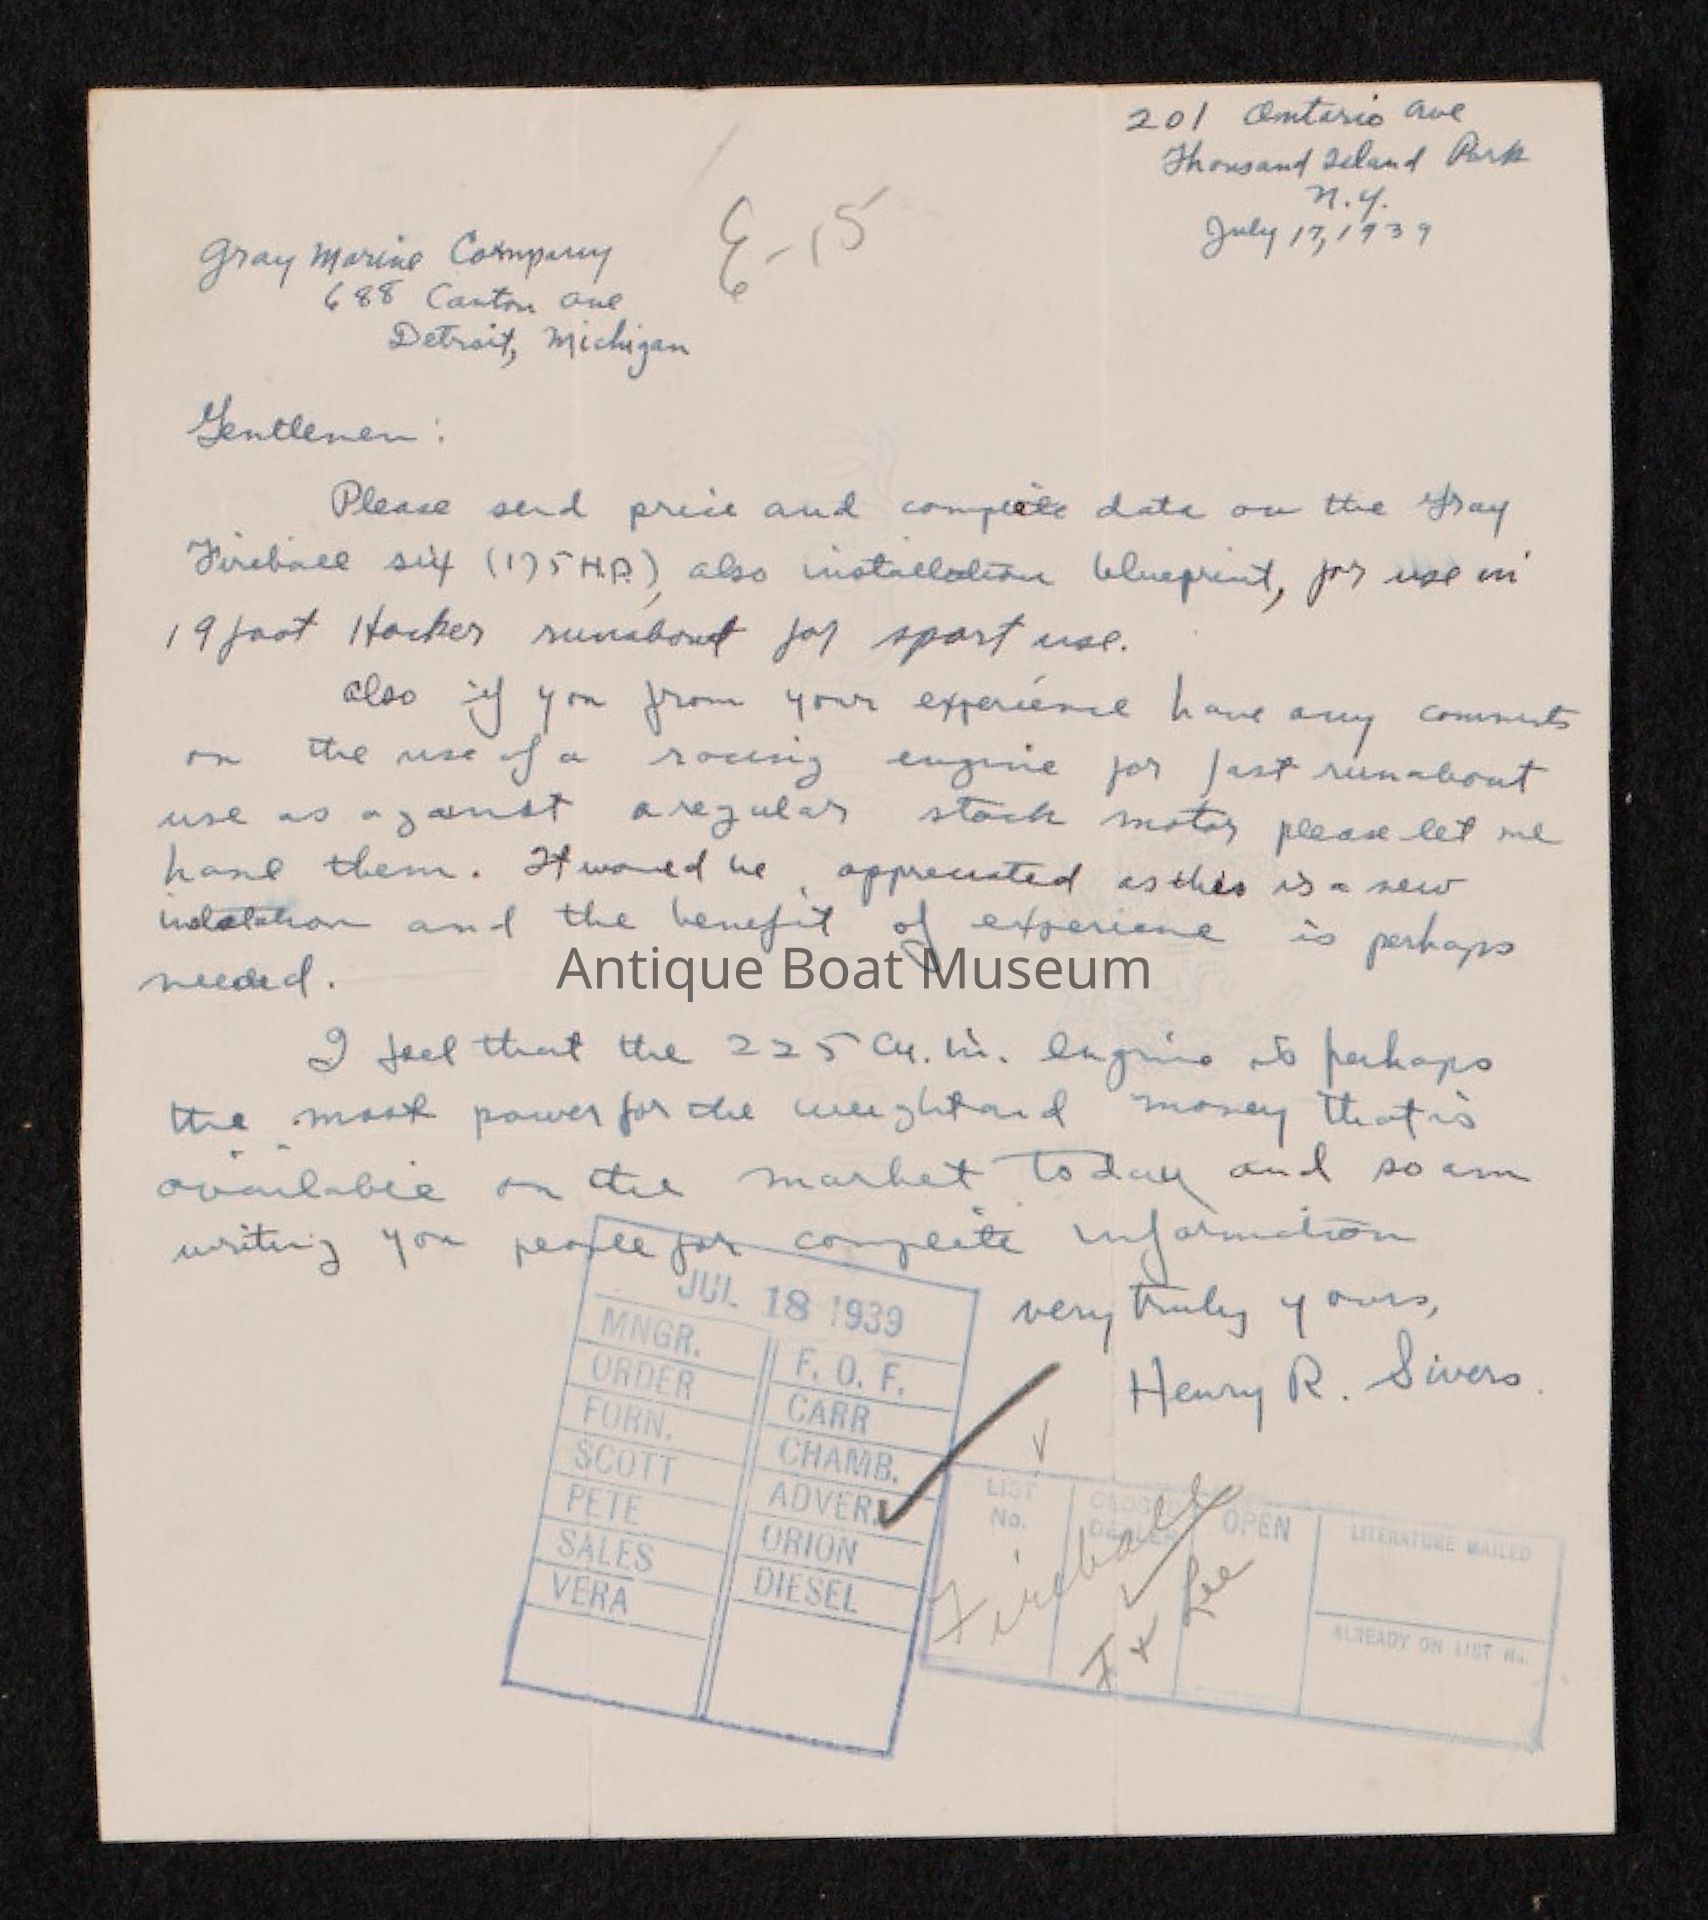 201 Ontario Ave
Thousand Island Park
N.Y.
July 17, 1939
E-15
Gray Marine Company
688 Canton Ave
Detroit, Michigan
Gentlemen:
Please send price and complete data on the Gray
Fireball six (175 H.P.), also installation blueprint, for use in
19 foot Hacker runabout for sport use.
Also if you from your experience have any comments
on the use of a racing engine for fast runabout
use as against a regular stock motor please let me
have them. It would be appreciated as this is a new
instalation and the benefit of experience is perhaps
needed.
Antique Boat Museum
I feel that the 225 Cu. in. engine is perhaps
the most power for the weight and money that is
available on the market today and so am
writing you people for complete information
very truly yours,
Henry R. Sivers.
JUL 18 1939
MNGR. F. O. F.
ORDER CARR
FORN. CHAMB.
SCOTT ADVER.
PETE ORION
SALES DIESEL
VERA
LIST No. CLOSEST DEALER OPEN LITERATURE MAILED
ALREADY ON LIST No.
Fireball
F + Lee